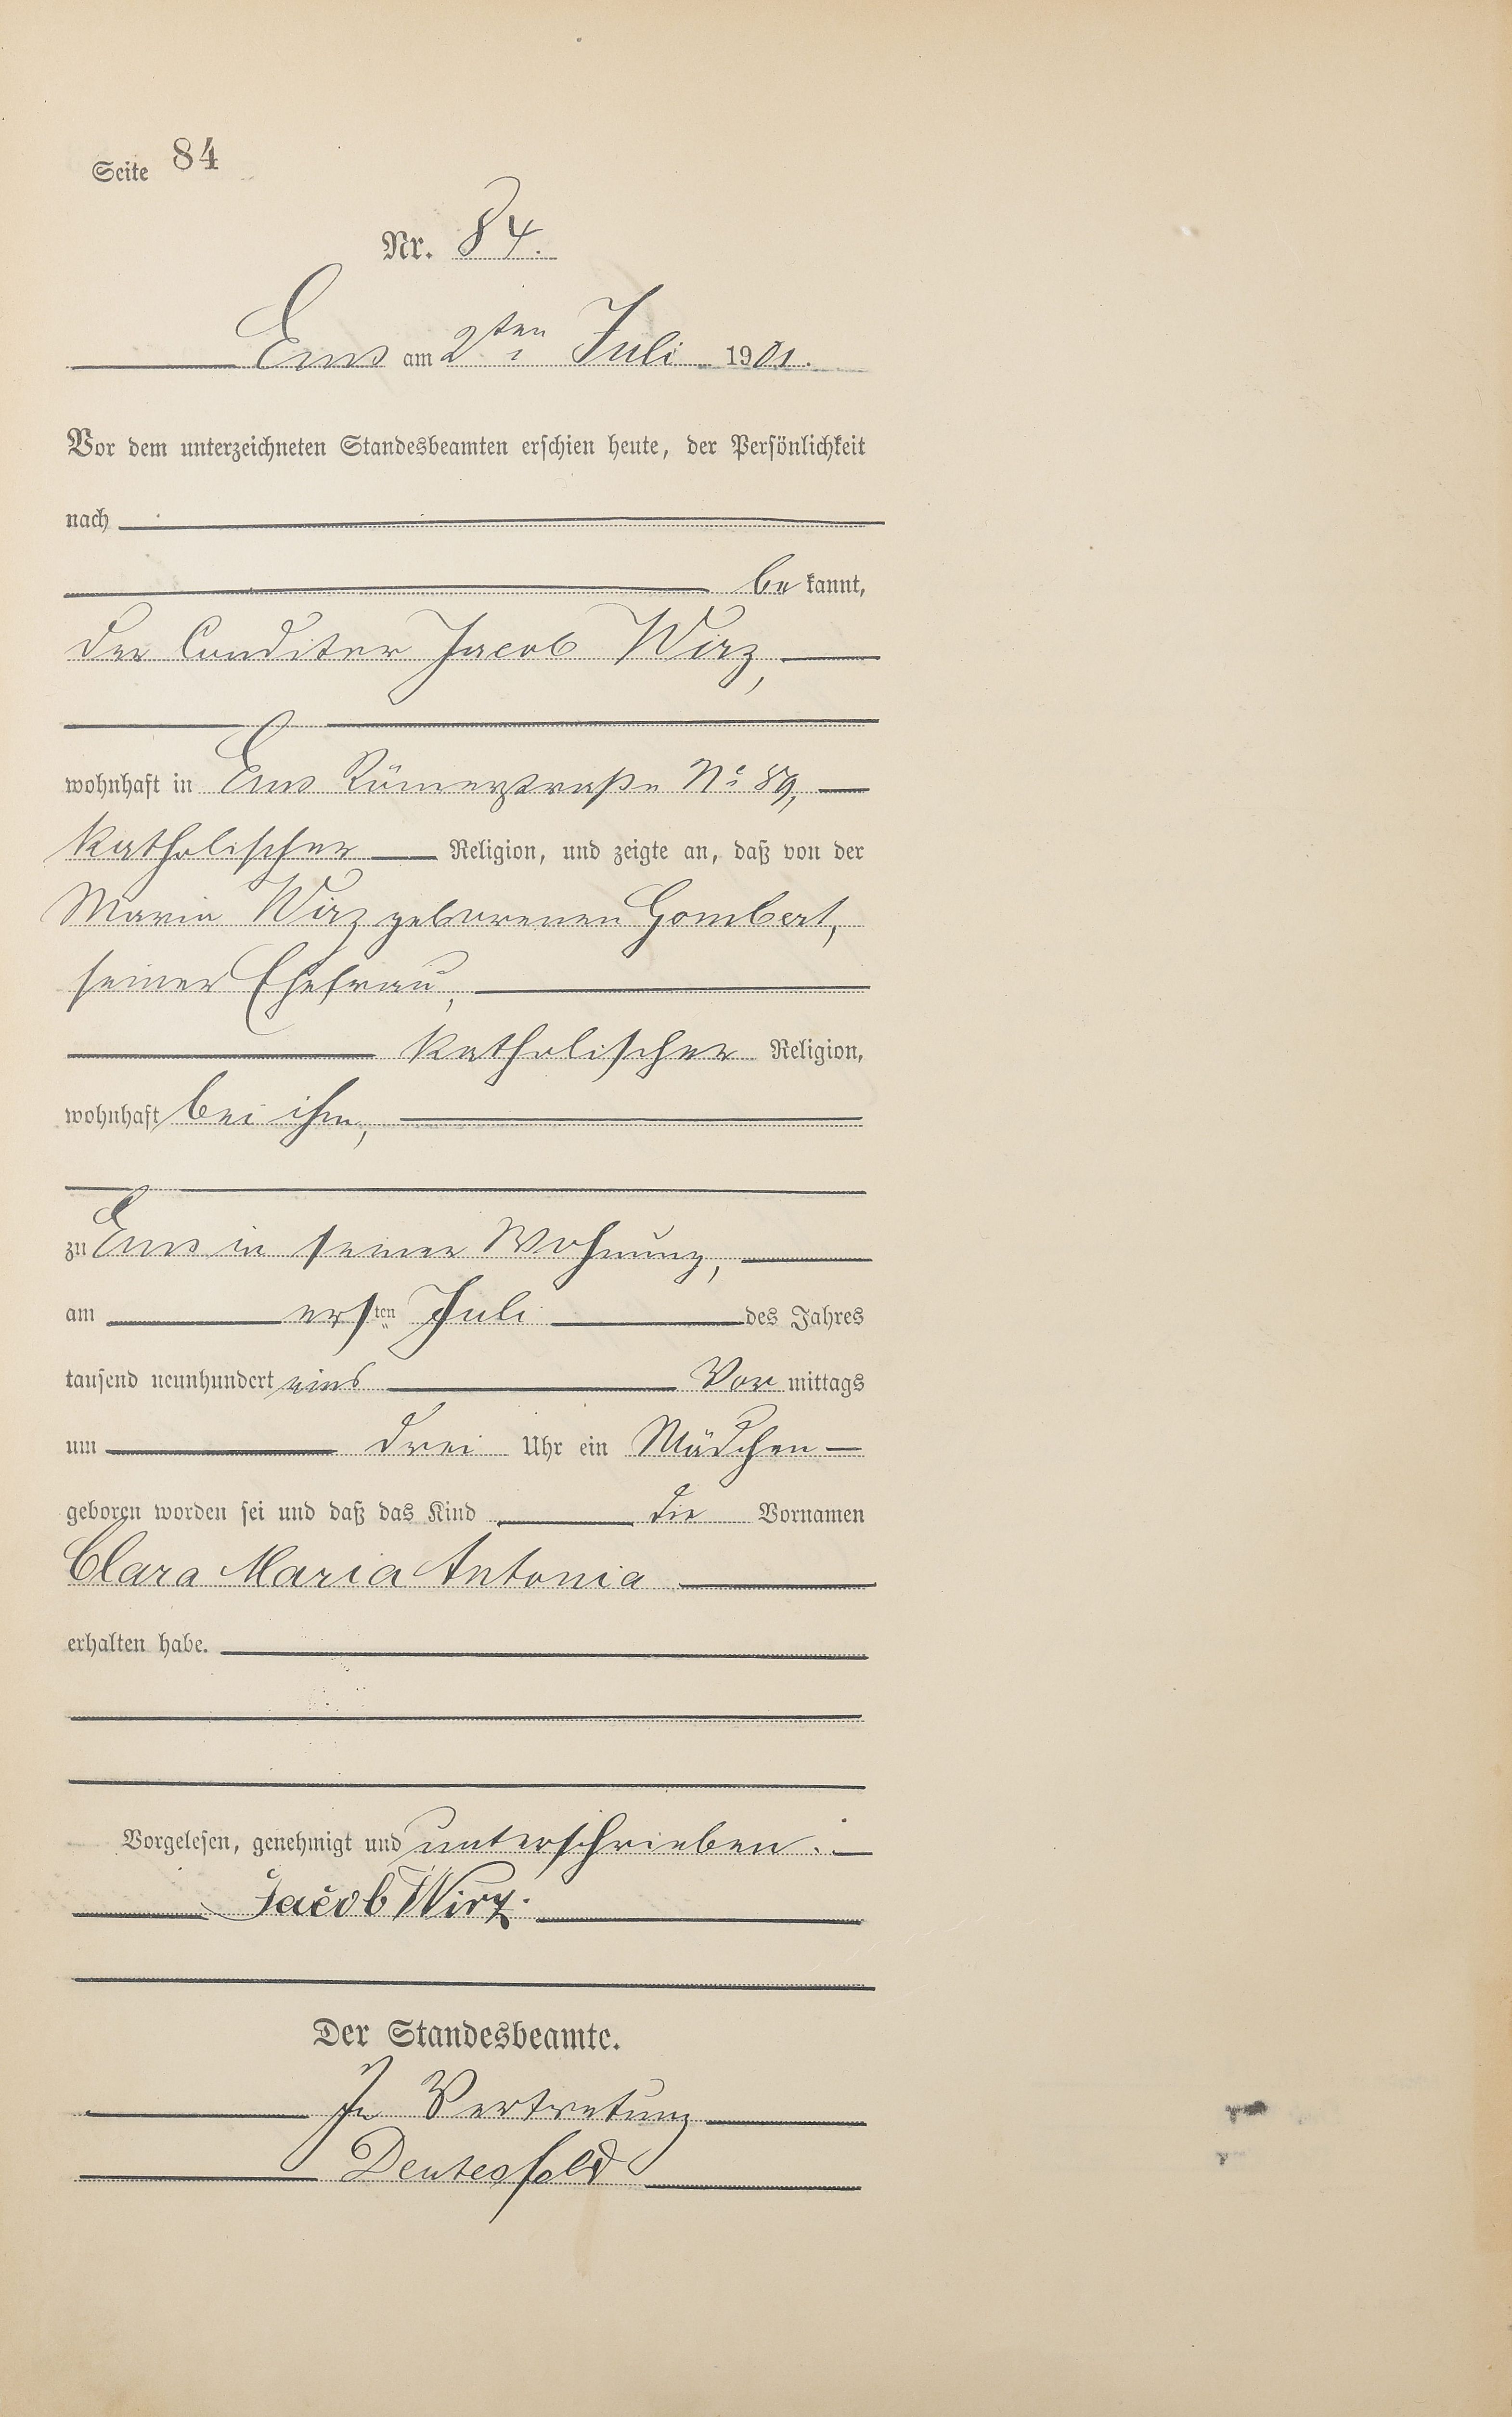 Seite 84
Nr. 84.
Ems am 2ten Juli 1901.
Vor dem unterzeichneten Standesbeamten erschien heute, der Persönlichkeit
nach
be kannt,
der Conditor Jacob Wirz,
wohnhaft in Ems Römerstraße No 89,
katholischer Religion, und zeigte an, daß von der
Maria Wirz geborenen Gombert,
seiner Ehefrau,
katholischer Religion,
wohnhaft bei ihm,
zu Ems in seiner Wohnung,
am ersten Juli des Jahres
tausend neunhundert eins Vor mittags
um drei Uhr ein Mädchen
geboren worden sei und daß das Kind die Vornamen
Clara Maria Antonia
erhalten habe.
Vorgelesen, genehmigt und unterschrieben.
Jacob Wirz.
Der Standesbeamte.
In Vertretung